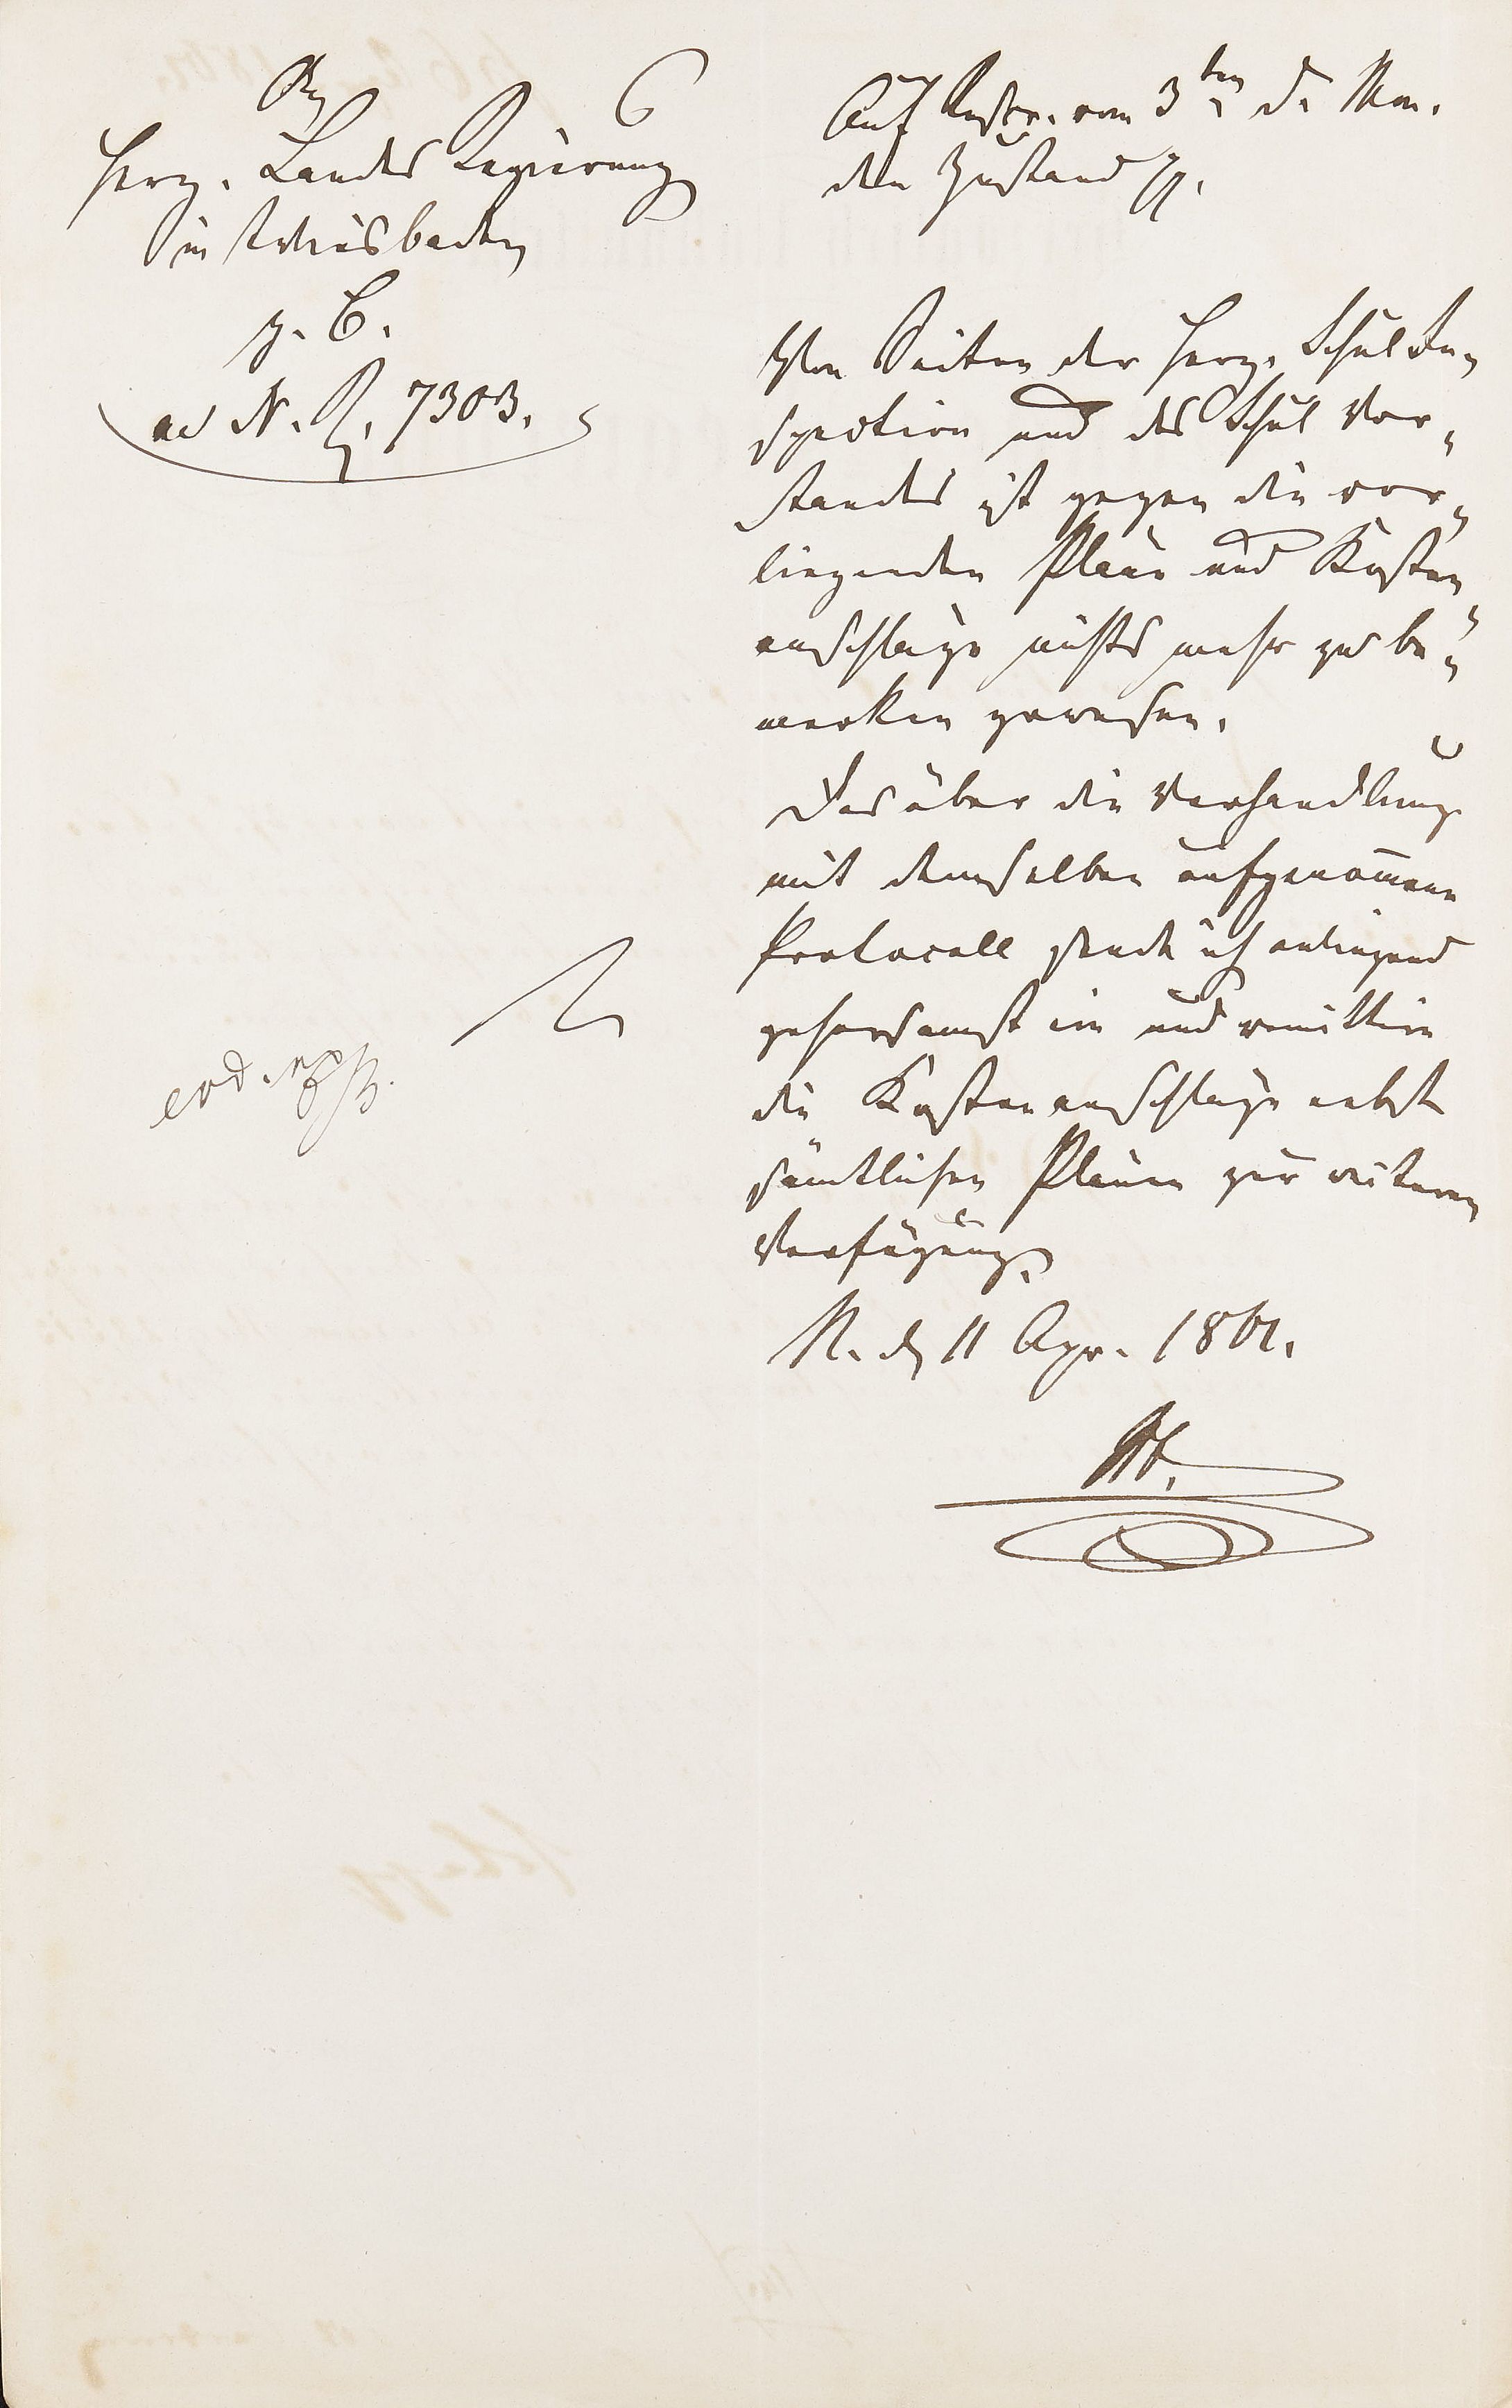 An
Herz. Landes Regierung
in Wiesbaden
z. B.
ad N. R. 7303.
Auf Rescr. vom 3ten d. Mon.
den Zustand
Von Seiten der Herz. Schul In-
spection und des Schul Vor-
standes ist gegen die vor-
liegenden Pläne und Kosten-
anschläge nichts mehr zu be-
merken gewesen.
Das über die Verhandlung
mit demselben aufgenom̄ene
Protocoll sende ich anliegend
gehorsamst ein und remittire
die Kostenanschläge nebst
sämtlichen Plänen zur weiteren
Verfügung.
N. d. 11 Apr. 1861.